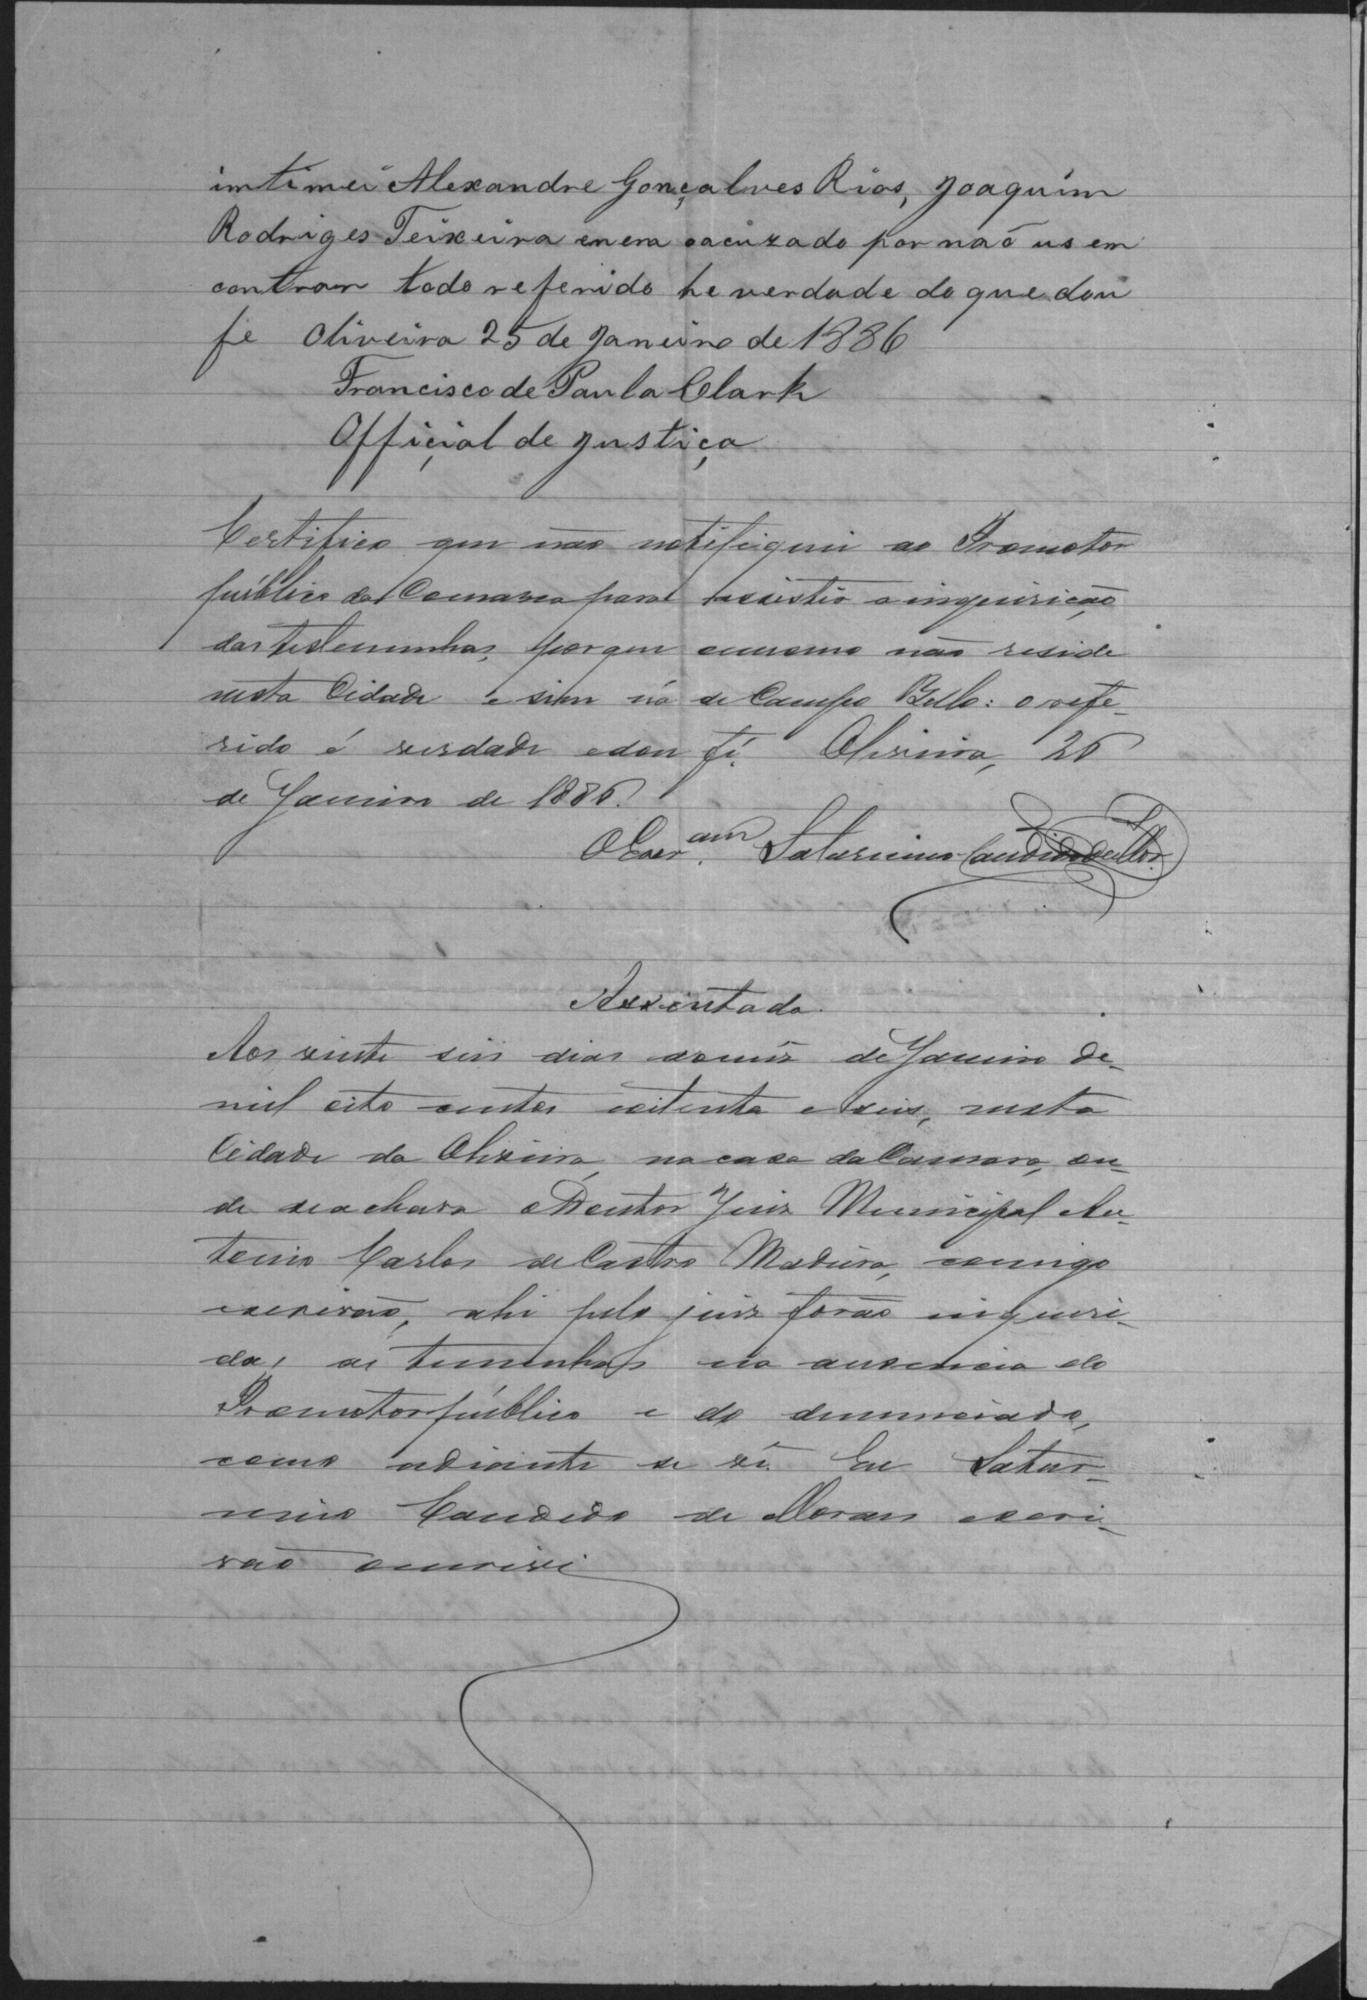 intimei Alexandre Gonçalves Rios, Joaquim
Rodriges Teixeira enem oacuzado por naõ us em
contrar todo referido he verdade do que dou
fe Oliveira 25 de Janeiro de 1886
Francisco de Paula Clark
Offiçial de Justiça
Certifico que não notifiquei ao Promotor
público da Comarca para assistir a inquirição
das testemunhas, porque omesmo não reside
nesta Cidade e sim na de Campo Bello: o refe-
rido é verdade e dou fé. Oliveira, 26
de Janeiro de 1886.
O Escr.am Saturnino Candido de Mor.
Assentada.
Aos vinte seis dias domez de Janeiro de
mil oito centos oitenta e seis, nesta
Cidade da Oliveira, na casa da Camara, on-
de seachava o Doutor Juiz Municipal An-
tonio Carlos de Castro Madura, comigo
escrivão, ahi pelo juiz forão inqueri-
das as temunhas na ausencia do
Promotor público e do denunciado,
como adiante se vê. Eu Satur-
nino Candido de Moraes escri-
vão oescrivi